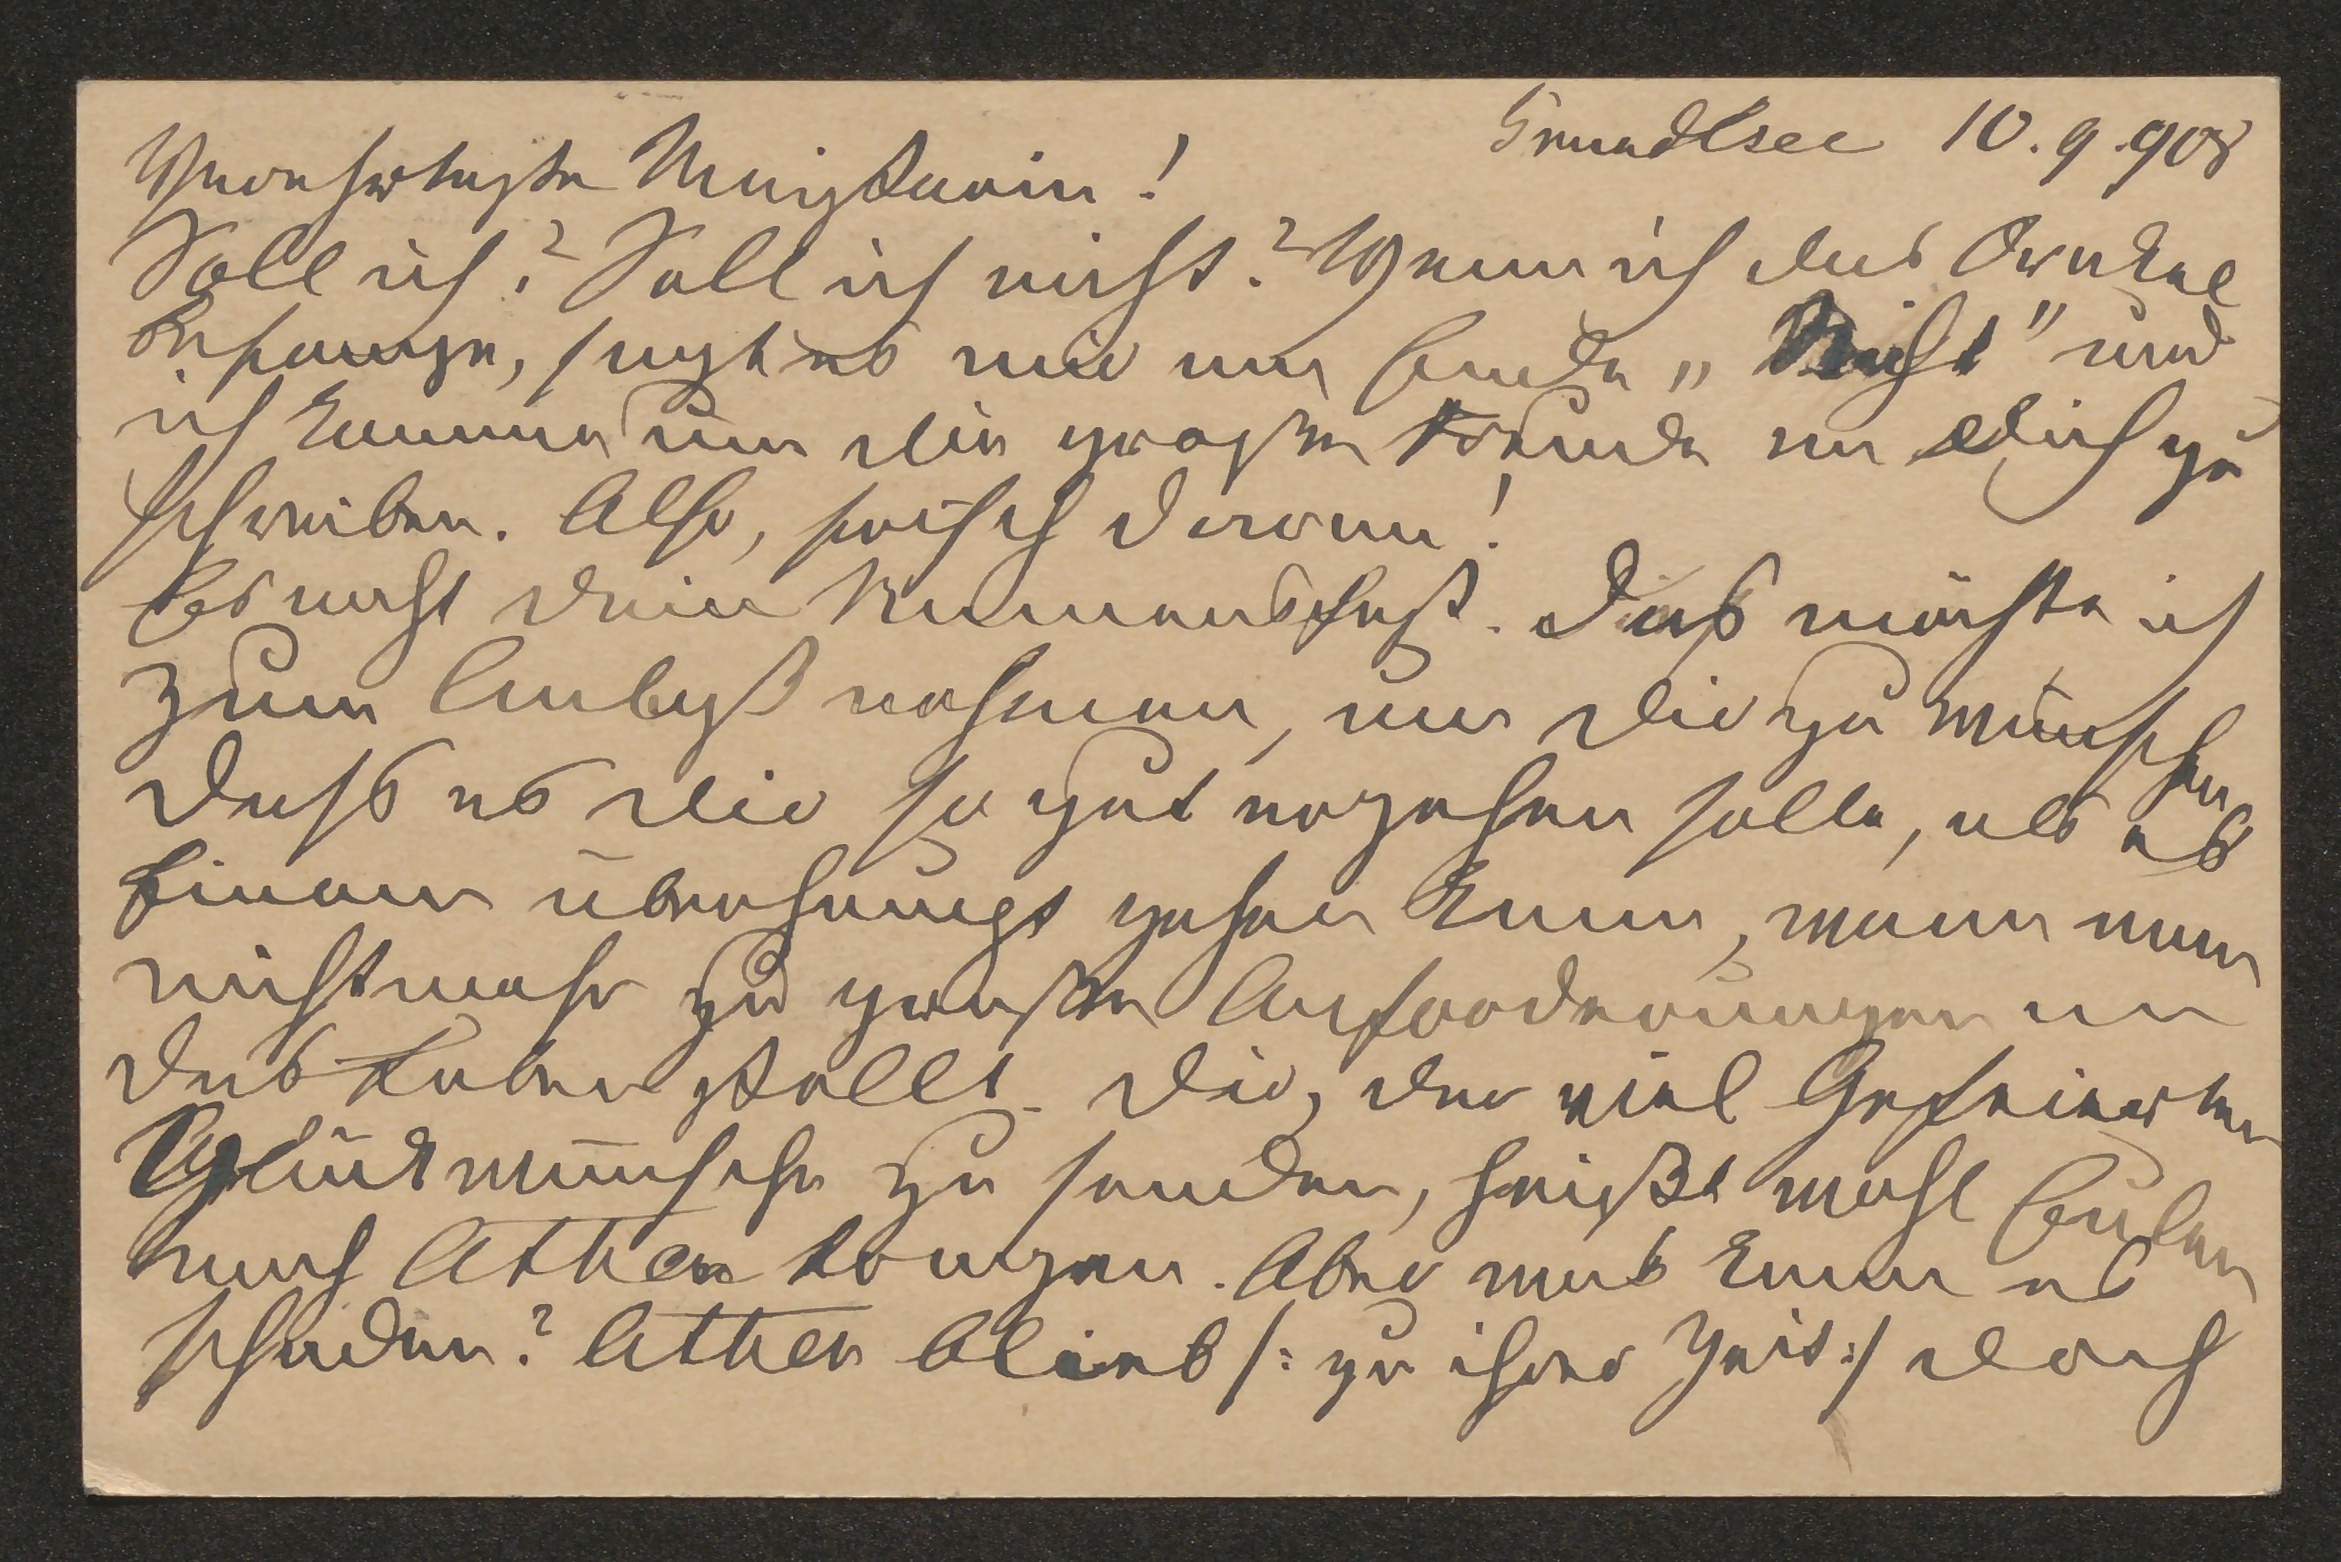 Grundlsee 10.9.908
Verehrteste Meisterin!
Soll ich? Soll ich nicht? Wenn ich das Orakel
befrage, sagt es mir am Ende "Nicht" und
ich komme um die große Freude an Dich zu
schreiben. Also, frisch daran!
Es naht Dein Namensfest. Dieß möchte ich
zum Anlaß nehmen, um Dir zu wünschen
daß es Dir so gut ergehen solle, als es
Einem überhaupt gehen kann, wenn man
nicht mehr zu große Anforderungen an
das Leben stellt. Dir, der viel Gefeierten
Glückwünsche zu senden, heißt wohl Eulen
nach Athen tragen. Aber was kann es
schaden? Athen blieb /: zu ihrer Zeit :/ doch